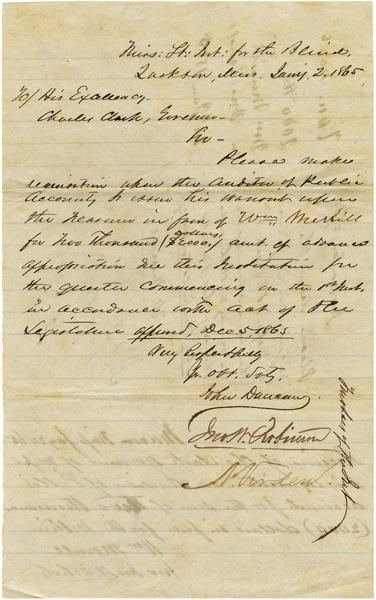 Miss: St: Inst: for the Blind,
Jackson, Miss. Jany 2, 1865
To/ His Excellency.
Charles Clark, Governor—
Sir—
Please make
requisition upon the Auditor of Public
Accounts to issue his warrant upon
the Treasurer in favor of Wm Merrill
for Two Thousand dollars ($2000.) amt. of advance
appropriation due this Institution for
the quarter commencing on the 1st Inst.
in accordance with act of the
Legislature approved, Dec 5, 1863
Very Respectfully
Yr. Obt. Svts.
John Duncan
Jno. W. Robinson
Trustees of the Inst